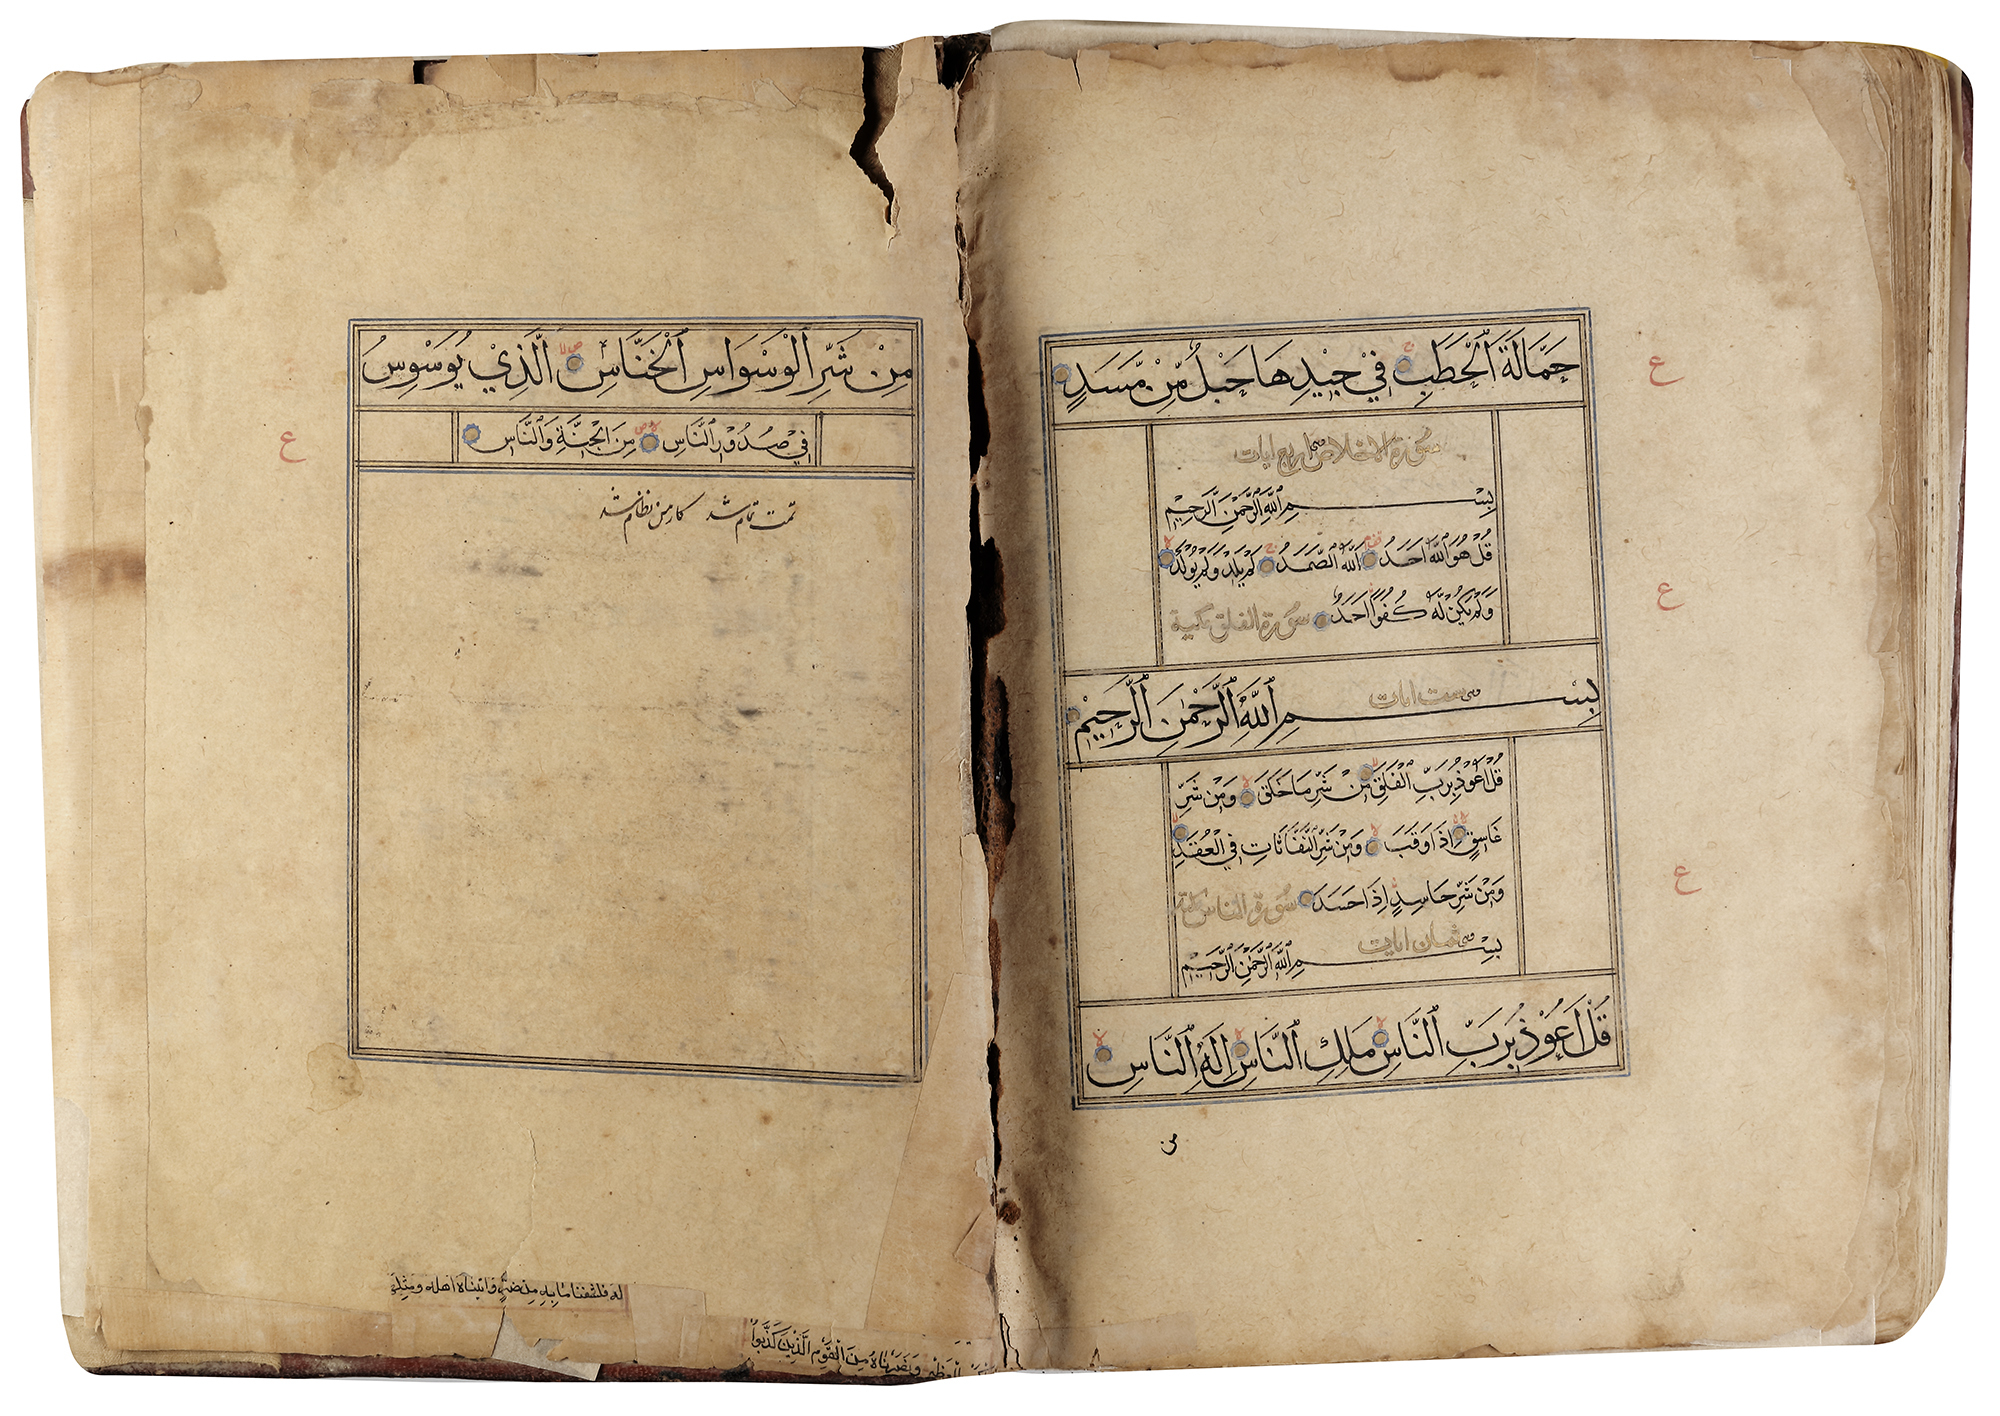 حَمَّالَةَ ٱلْحَطَبِ فِيْ جِيْدِهَا حَبْلٌ مِّنْ مَّسَدٍ
ع
سورة الاخلاص اربع ايات
بِسْمِ ٱللَّهِ ٱلرَّحْمٰنِ ٱلرَّحِيْمِ
قُلْ هُوَ ٱللَّهُ اَحَدٌ ٱللَّهُ ٱلصَّمَدُ لَمْ يَلِدْ وَلَمْ يُوْلَدْ
وَلَمْ يَكُنْ لَّهُ كُفُوًا اَحَدٌ سورة الفلق مكية
ع
وهى ست ايات
بِسْمِ ٱللَّهِ ٱلرَّحْمٰنِ ٱلرَّحِيْمِ
قُلْ اَعُوْذُ بِرَبِّ ٱلْفَلَقِ مِنْ شَرِّ مَا خَلَقَ وَمِنْ شَرِّ
غَاسِقٍ اِذَا وَقَبَ وَمِنْ شَرِّ ٱلنَّفَّاثَاتِ فِي ٱلْعُقَدِ
وَمِنْ شَرِّ حَاسِدٍ اِذَا حَسَدَ سورة الناس مكية
ع
وهى ثمان ايات
بِسْمِ ٱللَّهِ ٱلرَّحْمٰنِ ٱلرَّحِيْمِ
قُلْ اَعُوْذُ بِرَبِّ ٱلنَّاسِ مَلِكِ ٱلنَّاسِ اِلٰهِ ٱلنَّاسِ
من
مِنْ شَرِّ ٱلْوَسْوَاسِ ٱلْخَنَّاسِ ٱلَّذِيْ يُوَسْوِسُ
فِيْ صُدُوْرِ ٱلنَّاسِ مِنَ ٱلْجِنَّةِ وَٱلنَّاسِ
ع
تمت تمام شد كار من نظام شد
له فكشفنا ما به من ضر واتيناه اهله ومثلهم
وَنَصَرْنَاهُ مِنَ ٱلْقَوْمِ ٱلَّذِيْنَ كَذَّبُوْا